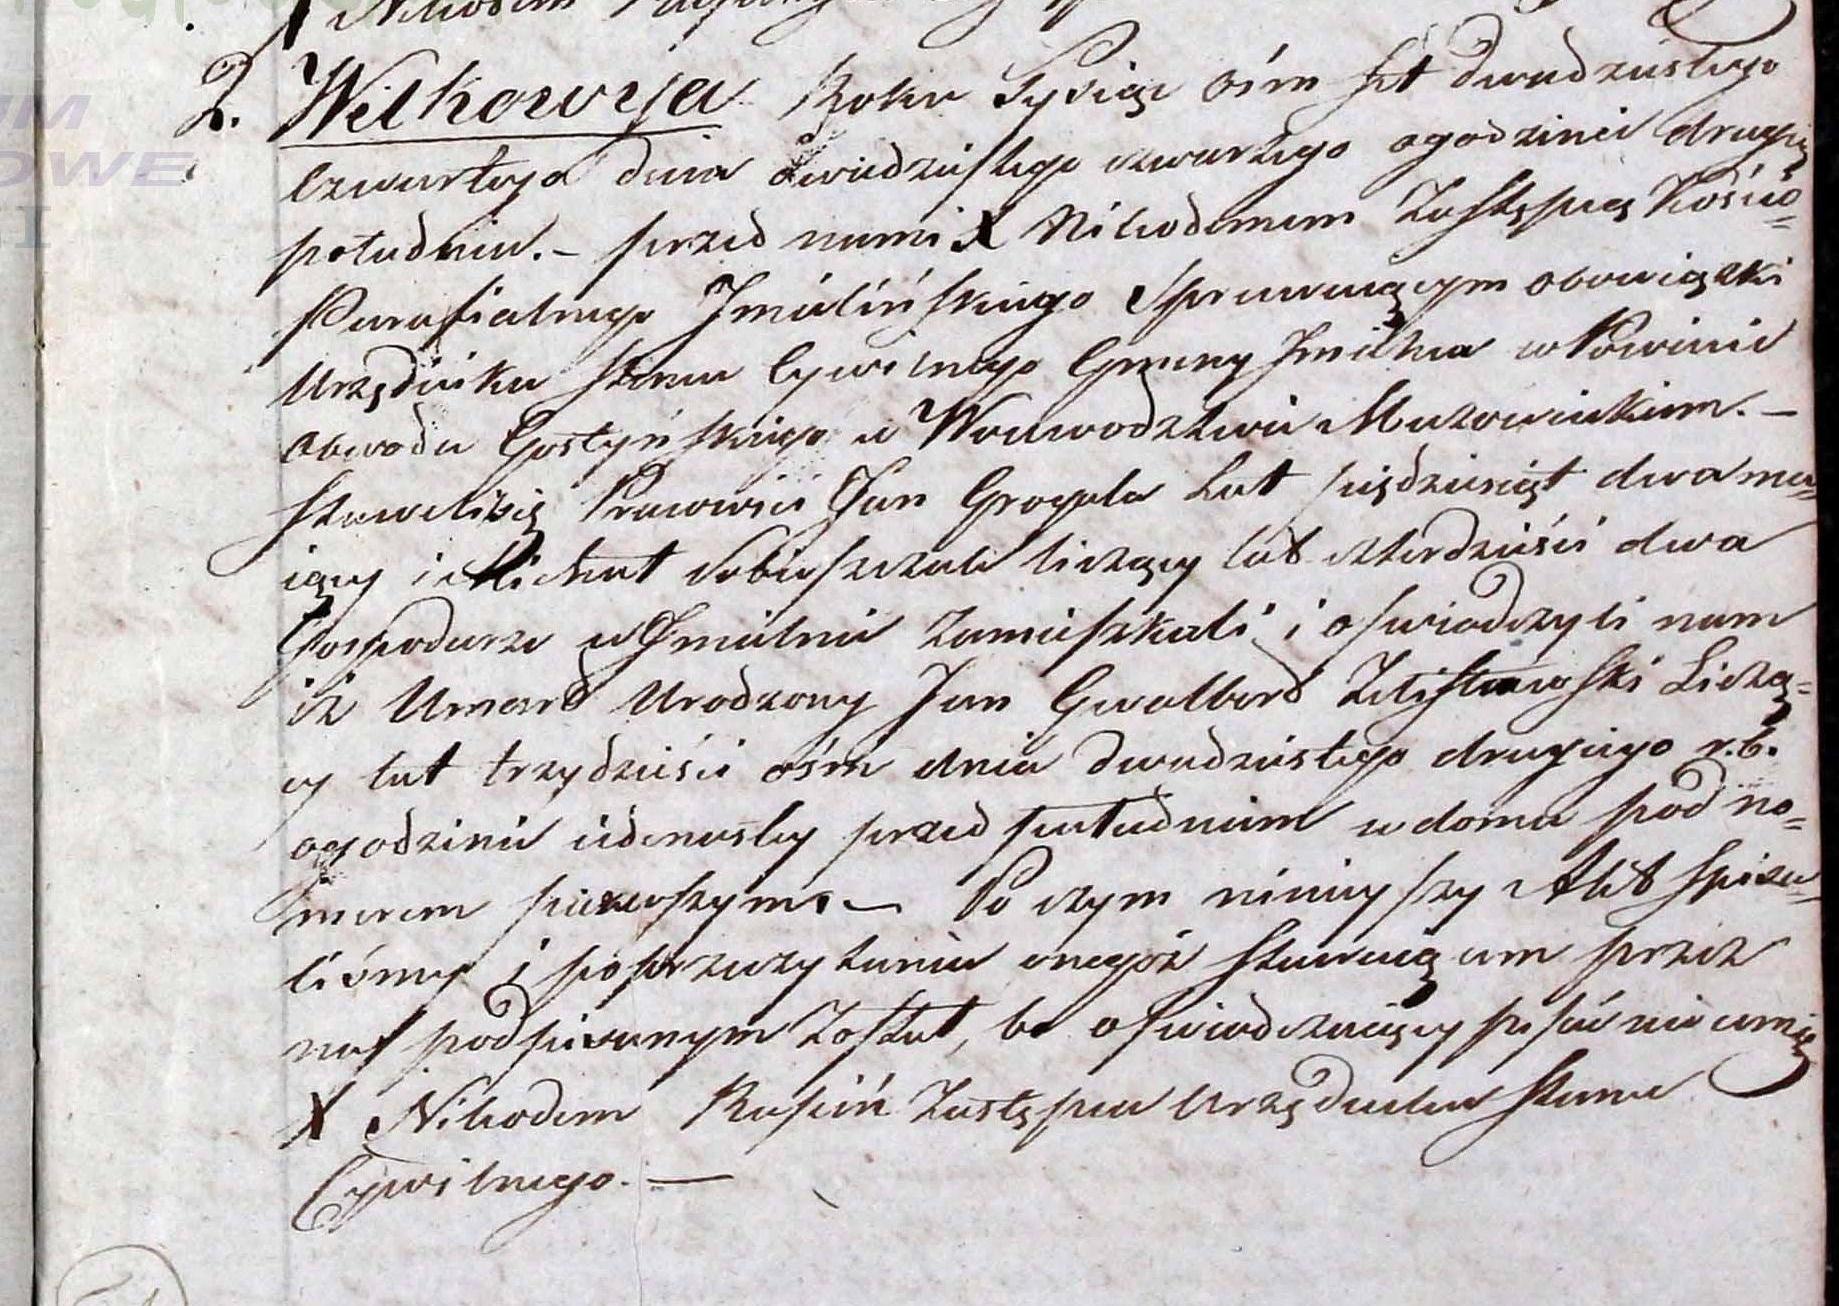 X Nikodem
2. Wilkowyja Roku Tysiąc ośm set dwudziestego
czwartego dnia dwudziestego czwartego ogodzinie drugiey
południu. – przed nami X Nikodemem Zastępcą Kościo=
Parafialnego Jmielińskiego Sprawuiącym obowiązki
Urzędnika Stanu Cywilnego Gminy Jmielna w Powiecie
Obwodu Gostyńskiego w Woiewodztwie Mazowieckim. –
Stawili się Pracowici Jan Grogula Lat pięcdziesiąt dwa ma=
iący i Michał Sobieszczak liczący lat czterdzieści dwa
Gospodarze w Jmielnie zamieszkali i oswiadczyli nam
iż Umarł Urodzony Jan Gwalbert Licza=
cy lat trzydzieści ośm dnia dwudziestego drugiego r.b.
ogodzinie iedenastey przed południem w domu pod no=
merem pierwszym. – Po czym ninieyszy Akt spisa=
liśmy i poprzeczytaniu onegoż Stawaiącem przez
nas podpisanym Został, bo oswiadczaiący pisać nie umieią
X Nikodem Zastępca Urzędnika Stanu
Cywilnego. –